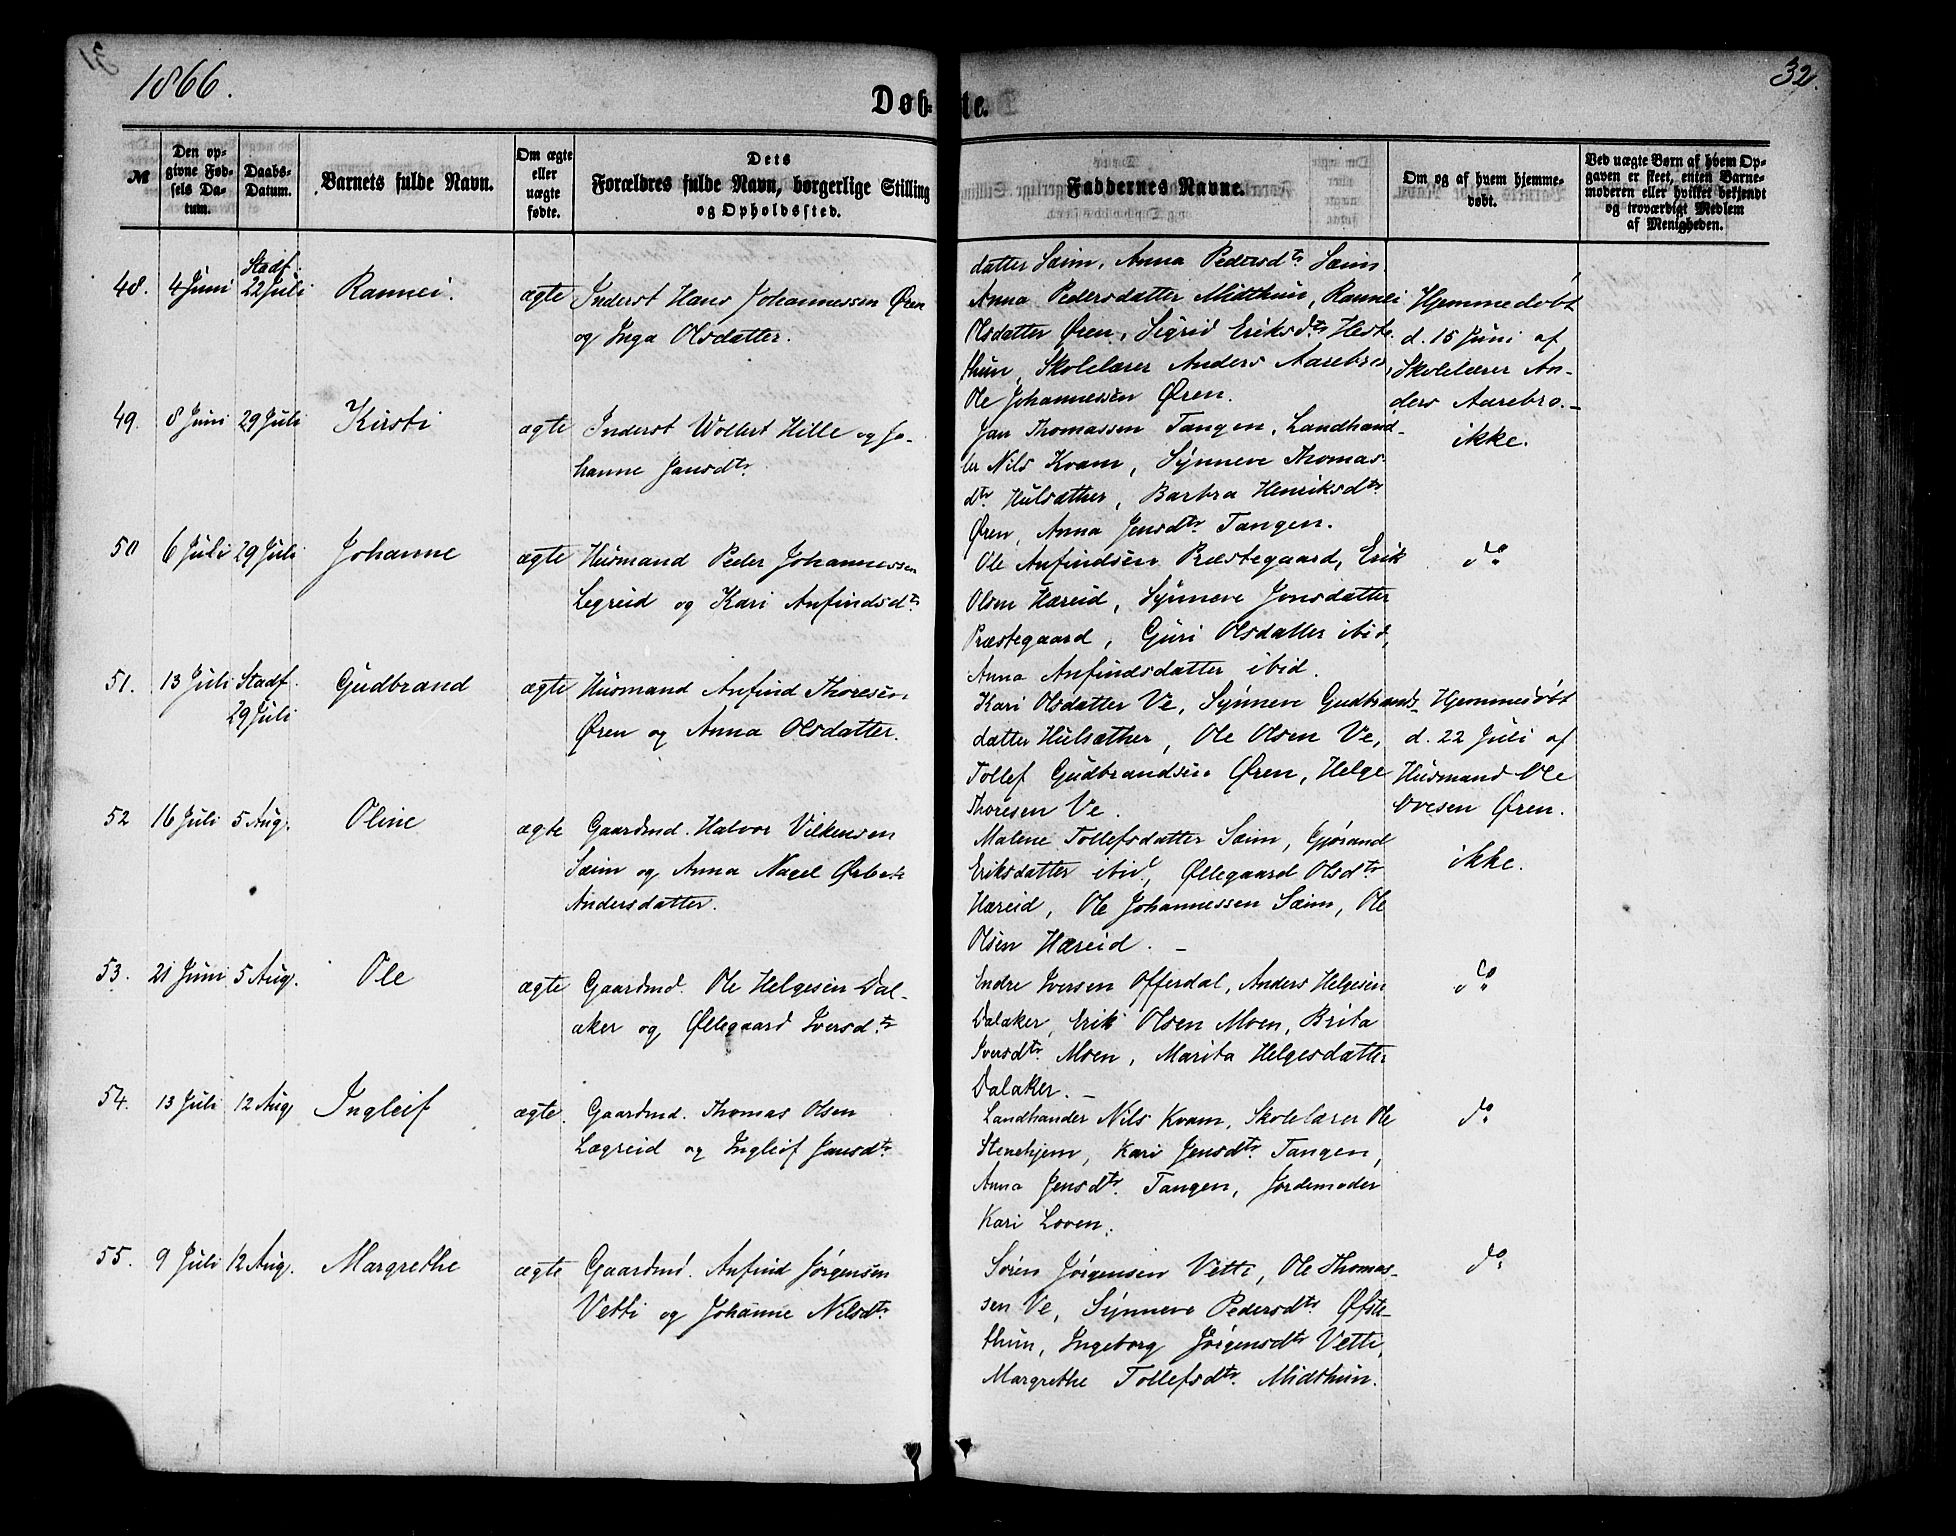 1866.
32.
Døb-
te.
№
Den op-
givne Fød-
sels Da-
tum.
Daabs-
Datum.
Barnets fulde Navn.
Om ægte
eller
uægte
fødte.
Dets
Forældres fulde Navn, borgerlige Stilling
og Opholdssted.
Faddernes Navne.
Om og af hvem hjemme-
døbt.
Ved uægte Børn af hvem Op-
gaven er skeet, enten Barne-
moderen eller hvilket bekjendt
og troværdigt Medlem
af Menigheden.
datter Sæim, Anna Pedersdtr Sæim
48.
4 Juni
Stadf.
22 Juli
Rannei.
ægte
Inderst Hans Johannessen Øren
og Inga Olsdatter.
Anna Pedersdatter Midthun, Rannei
Olsdatter Øren, Sigrid Eriksdtr Heste-
thun, Skolelærer Anders Aarebro,
Ole Johannessen Øren.
Hjemmedøbt
d. 15 Juni af
Skolelærer An-
ders Aarebro.-
49.
8 Juni
29 Juli
Kirsti
ægte
Inderst Wollert Hille og Jo-
hanne Jansdtr
Jan Thomassen Tangen, Landhand-
ler Nils Kvam, Synneve Thomas-
dtr Hulsæther, Barbra Henriksdtr
Øren, Anna Jensdtr Tangen.
ikke.
50
6 Juli
29 Juli
Johanne
ægte
Husmand Peder Johannessen
Legreid og Kari Anfindsdtr
Ole Anfindsen Præstegaard, Erik
Olsen Hæreid, Synneve Jonsdatter
Præstegaard, Guri Olsdatter ibid,
Anna Anfindsdatter ibid.
do
51.
13 Juli
Stadf.
29 Juli
Gudbrand
ægte
Husmand Anfind Thoresen
Øren og Anna Olsdatter.
Kari Olsdatter Ve, Synneve Gudbrands-
datter Hulsæther, Ole Olsen Ve,
Tollef Gudbrandsen Øren, Helge
Thoresen Ve.
Hjemmedøbt
d. 22 Juli af
Husmand Ole
Ovesen Øren.
52
16 Juli
5 Aug.
Oline
ægte
Gaardmd. Halvor Vilkensen
Sæim og Anna Nagel Ørbech
Andersdatter.
Malene Tollefsdatter Sæim, Gjørand
Eriksdatter ibid, Øllegaard Olsdtr
Hæreid, Ole Johannessen Sæim, Ole
Olsen Hæreid. -
ikke.
53.
21 Juni
5 Aug.
Ole
ægte
Gaardmd. Ole Helgesen Dal-
aker og Øllegaard Iversdtr
Endre Iversen Offerdal, Anders Helgesen
Dalaker, Erik Olsen Moen, Brita
Iversdtr Moen, Marita Helgesdatter
Dalaker. -
do
54.
13 Juli
12 Aug
Ingleif
ægte.
Gaardmd. Thomas Olsen
Lægreid og Ingleif Jansdtr
Landhander Nils Kvam, Skolelærer Ole
Stenehjem, Kari Jensdtr Tangen,
Anna Jensdtr Tangen, Jordemoder
Kari Loven.
do
55.
9 Juli
12 Aug.
Margrethe
ægte
Gaardmd. Anfind Jørgensen
Vetti og Johanne Nilsdtr
Søren Jørgensen Vetti, Ole Thomas-
sen Ve, Synneve Pedersdtr Øfste-
thun, Ingeborg Jørgensdtr Vetti,
Margrethe Tollefsdtr Midthun.
do